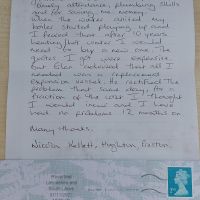 timely attendance, plumbing skills
and for saving me money
when the winter arrived my
boiler started playing up and
I feared that after 10 years
heating hot water I would
need to buy a new one. The
quotes I got were expensive
but Glen advised that all I
needed was a replacement
expansion vessel. He rectified the
problem that same day for a
fraction of the cost I thought
I would incur and I have
had no problems 12 months on
Many thanks.
Nicola Kellett, Hughton, Preston.
Royal Mail
Lancashire and
South Lakes
1st